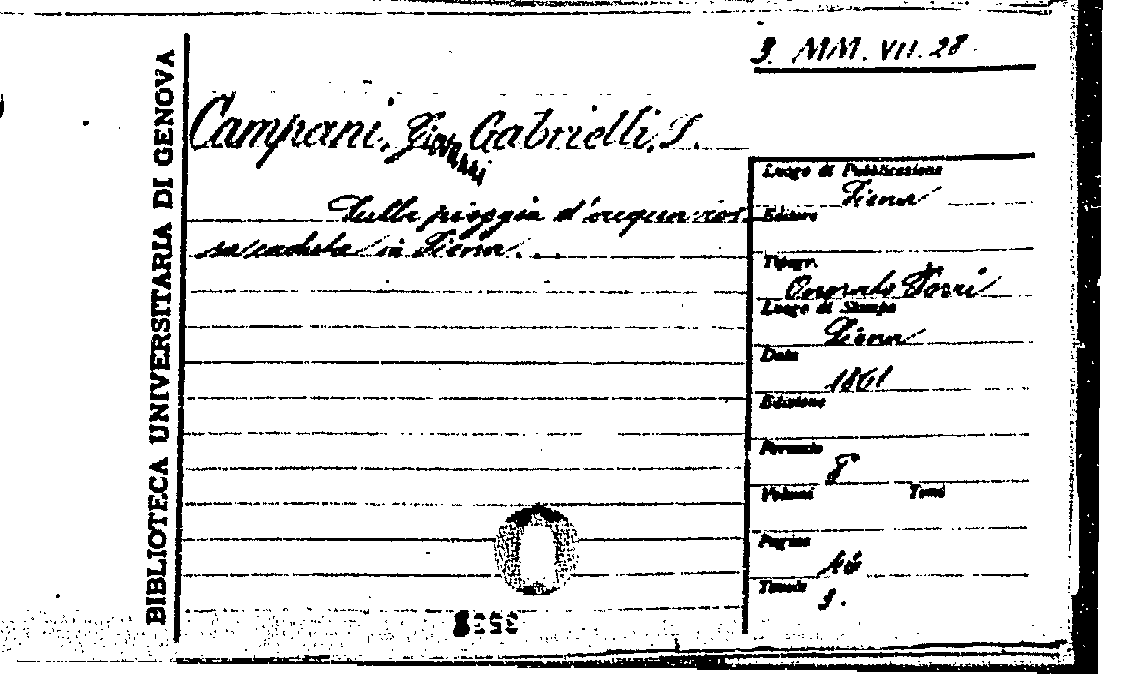 3. MM. VII. 28.
BIBLIOTECA UNIVERSITARIA DI GENOVA
Campani, Giovanni Gabrielli, S.
Sulla pioggia d'acqua ros-
sa caduta in Siena...
Luogo di Pubblicazione
Siena
Editore
Tipogr.
Torri
Luogo di Stampa
Siena
Data
1861
Edizione
Formato
8°
Volumi Tomi
Pagine
16
Tavole
3.